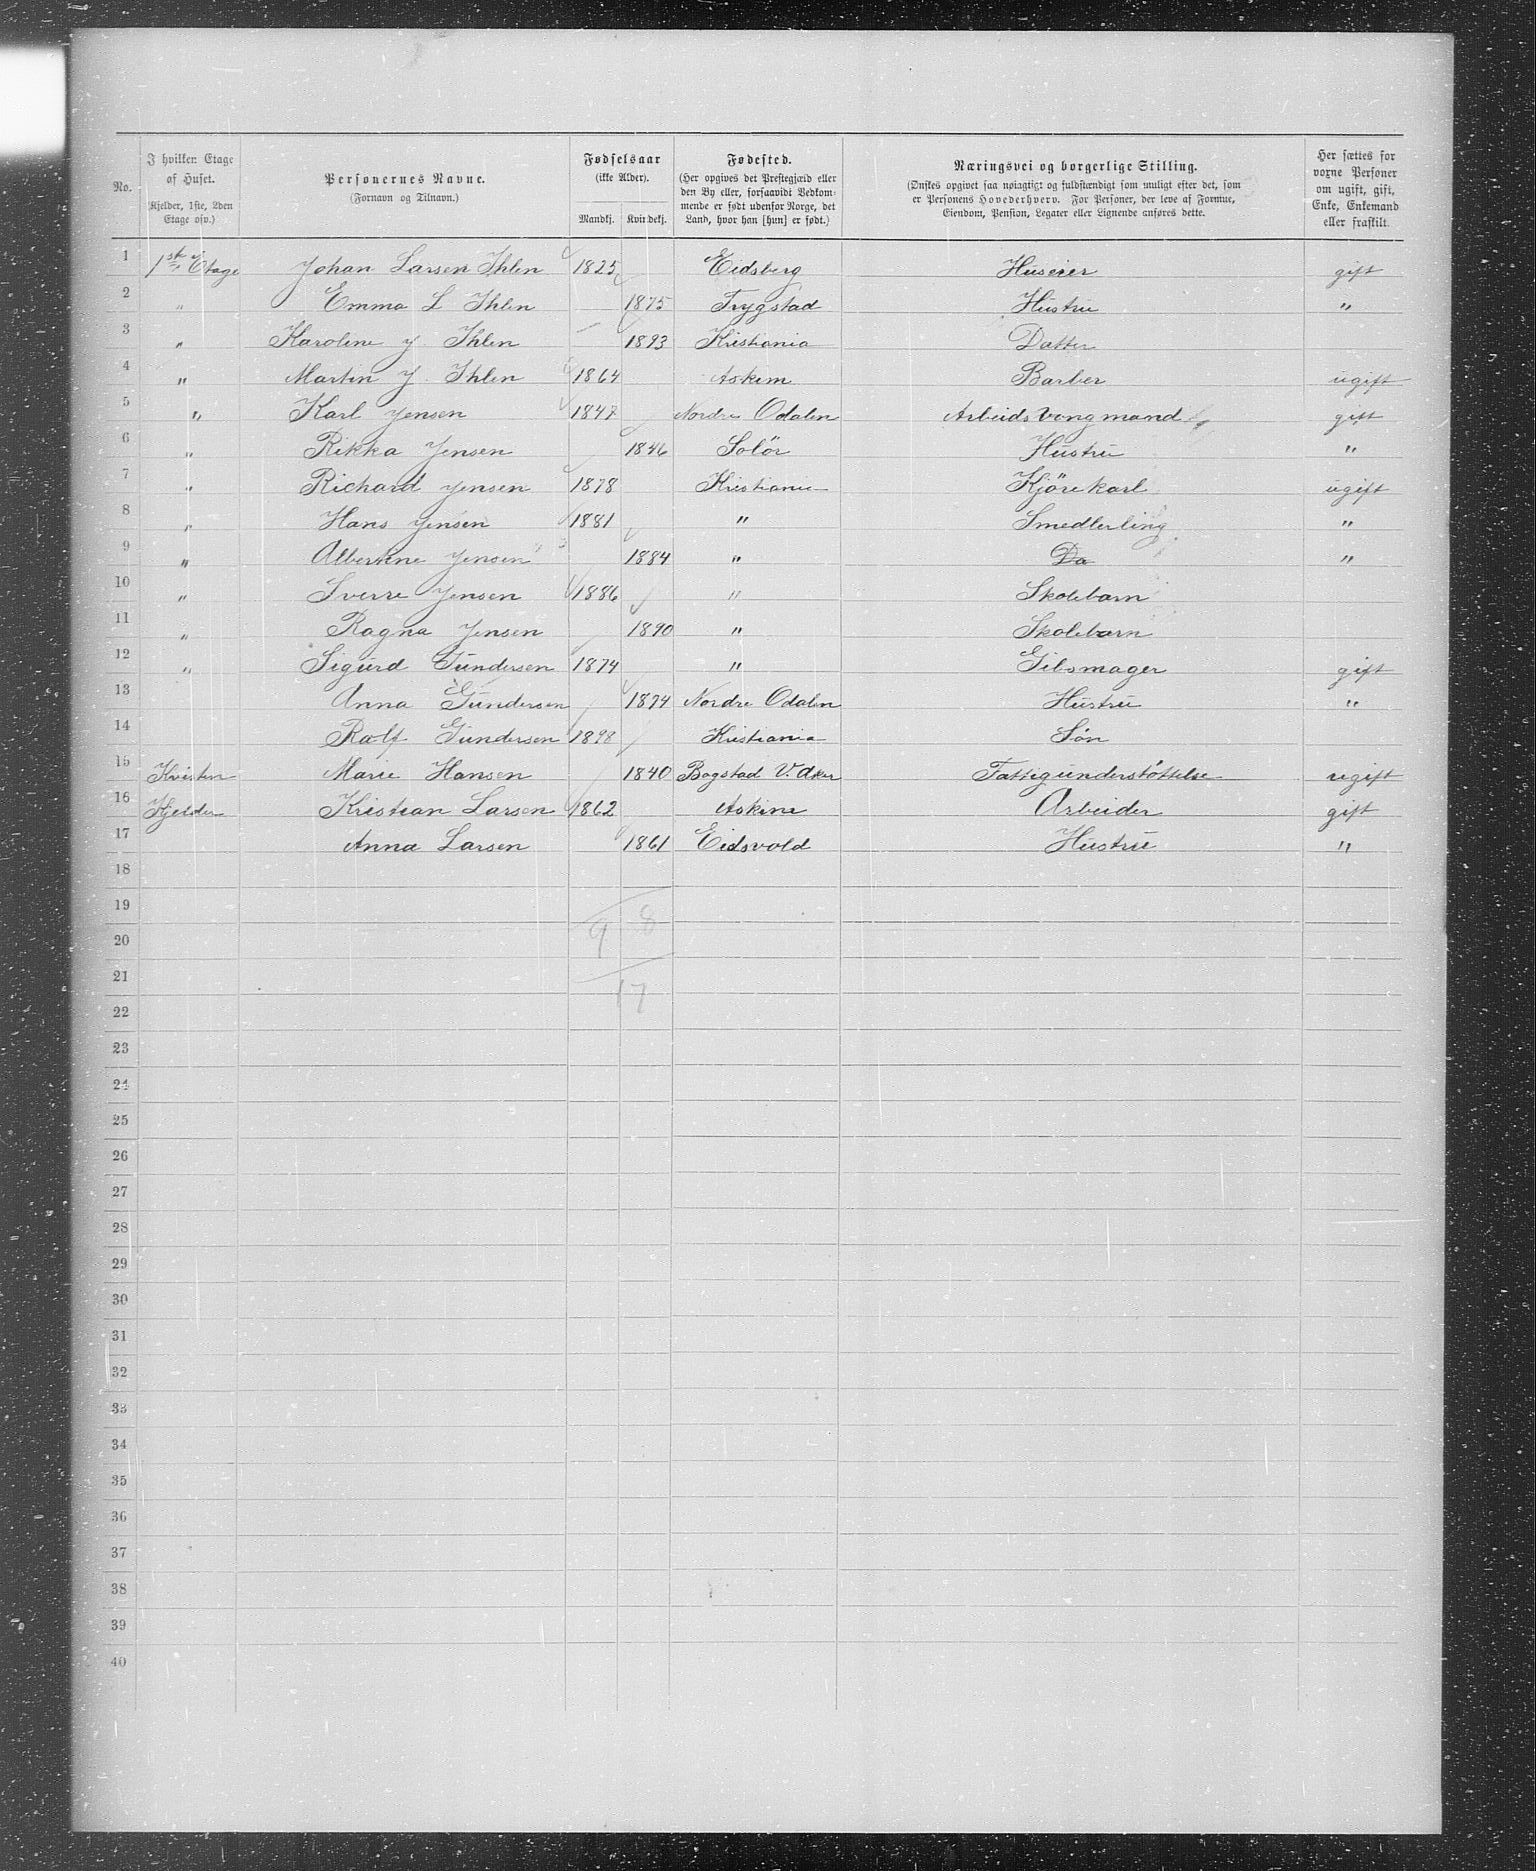 No. | I hvilken Etage af Huset. (Kjelder, 1ste, 2den Etage osv.) | Personernes Navne. (Fornavn og Tilnavn.) | Fødselsaar (ikke Alder). Mandkj. | Kvindekj. | Fødested. (Her opgives det Prestegjæld eller den By eller, forsaavidt Vedkommende er født udenfor Norge, det Land, hvor han [hun] er født.) | Næringsvei og borgerlige Stilling. (Ønskes opgivet saa nøiagtigt og fuldstændigt som muligt efter det, som er Personens Hovederhverv. For Personer, der leve af Formue, Eiendom, Pension, Legater eller Lignende anføres dette.) | Her sættes for voxne Personer om ugift, gift, Enke, Enkemand eller fraskilt.
1 | 1ste Etage | Johan Larsen Ihlen | 1825 | | Eidsberg | Huseier | gift
2 | " | Emma L Ihlen | | 1875 | Trygstad | Hustru | "
3 | " | Karoline J. Ihlen | | 1893 | Kristiania | Datter
4 | " | Martin J. Ihlen | 1864 | | Askim | Barber | ugift
5 | " | Karl Jensen | 1847 | | Nordre Odalen | Arbeids Vongmand | gift
6 | " | Rikka Jensen | | 1846 | Solör | Hustru | "
7 | " | Richard Jensen | 1878 | | Kristiania | Kjörekarl | ugift
8 | " | Hans Jensen | 1881 | | " | Smedlerling | "
9 | " | Albertine Jensen | | 1884 | " | Do | "
10 | " | Sverre Jensen | 1886 | | " | Skolebarn
11 | " | Ragna Jensen | | 1890 | " | Skolebarn
12 | " | Sigurd Gundersen | 1874 | | " | Gibsmager | gift
13 | | Anna Gundersen | | 1874 | Nordre Odalen | Hustru | "
14 | | Rolf Gundersen | 1898 | | Kristiania | Sön
15 | Kvisten | Marie Hansen | | 1840 | Bogstad V. Aker | Fattigunderstöttelse | ugift
16 | Kjelder | Kristian Larsen | 1862 | | Askim | Arbeider | gift
17 | | Anna Larsen | | 1861 | Eidsvold | Hustru | "
18
19
9 | 8
20
21
17
22
23
24
25
26
27
28
29
30
31
32
33
34
35
36
37
38
39
40